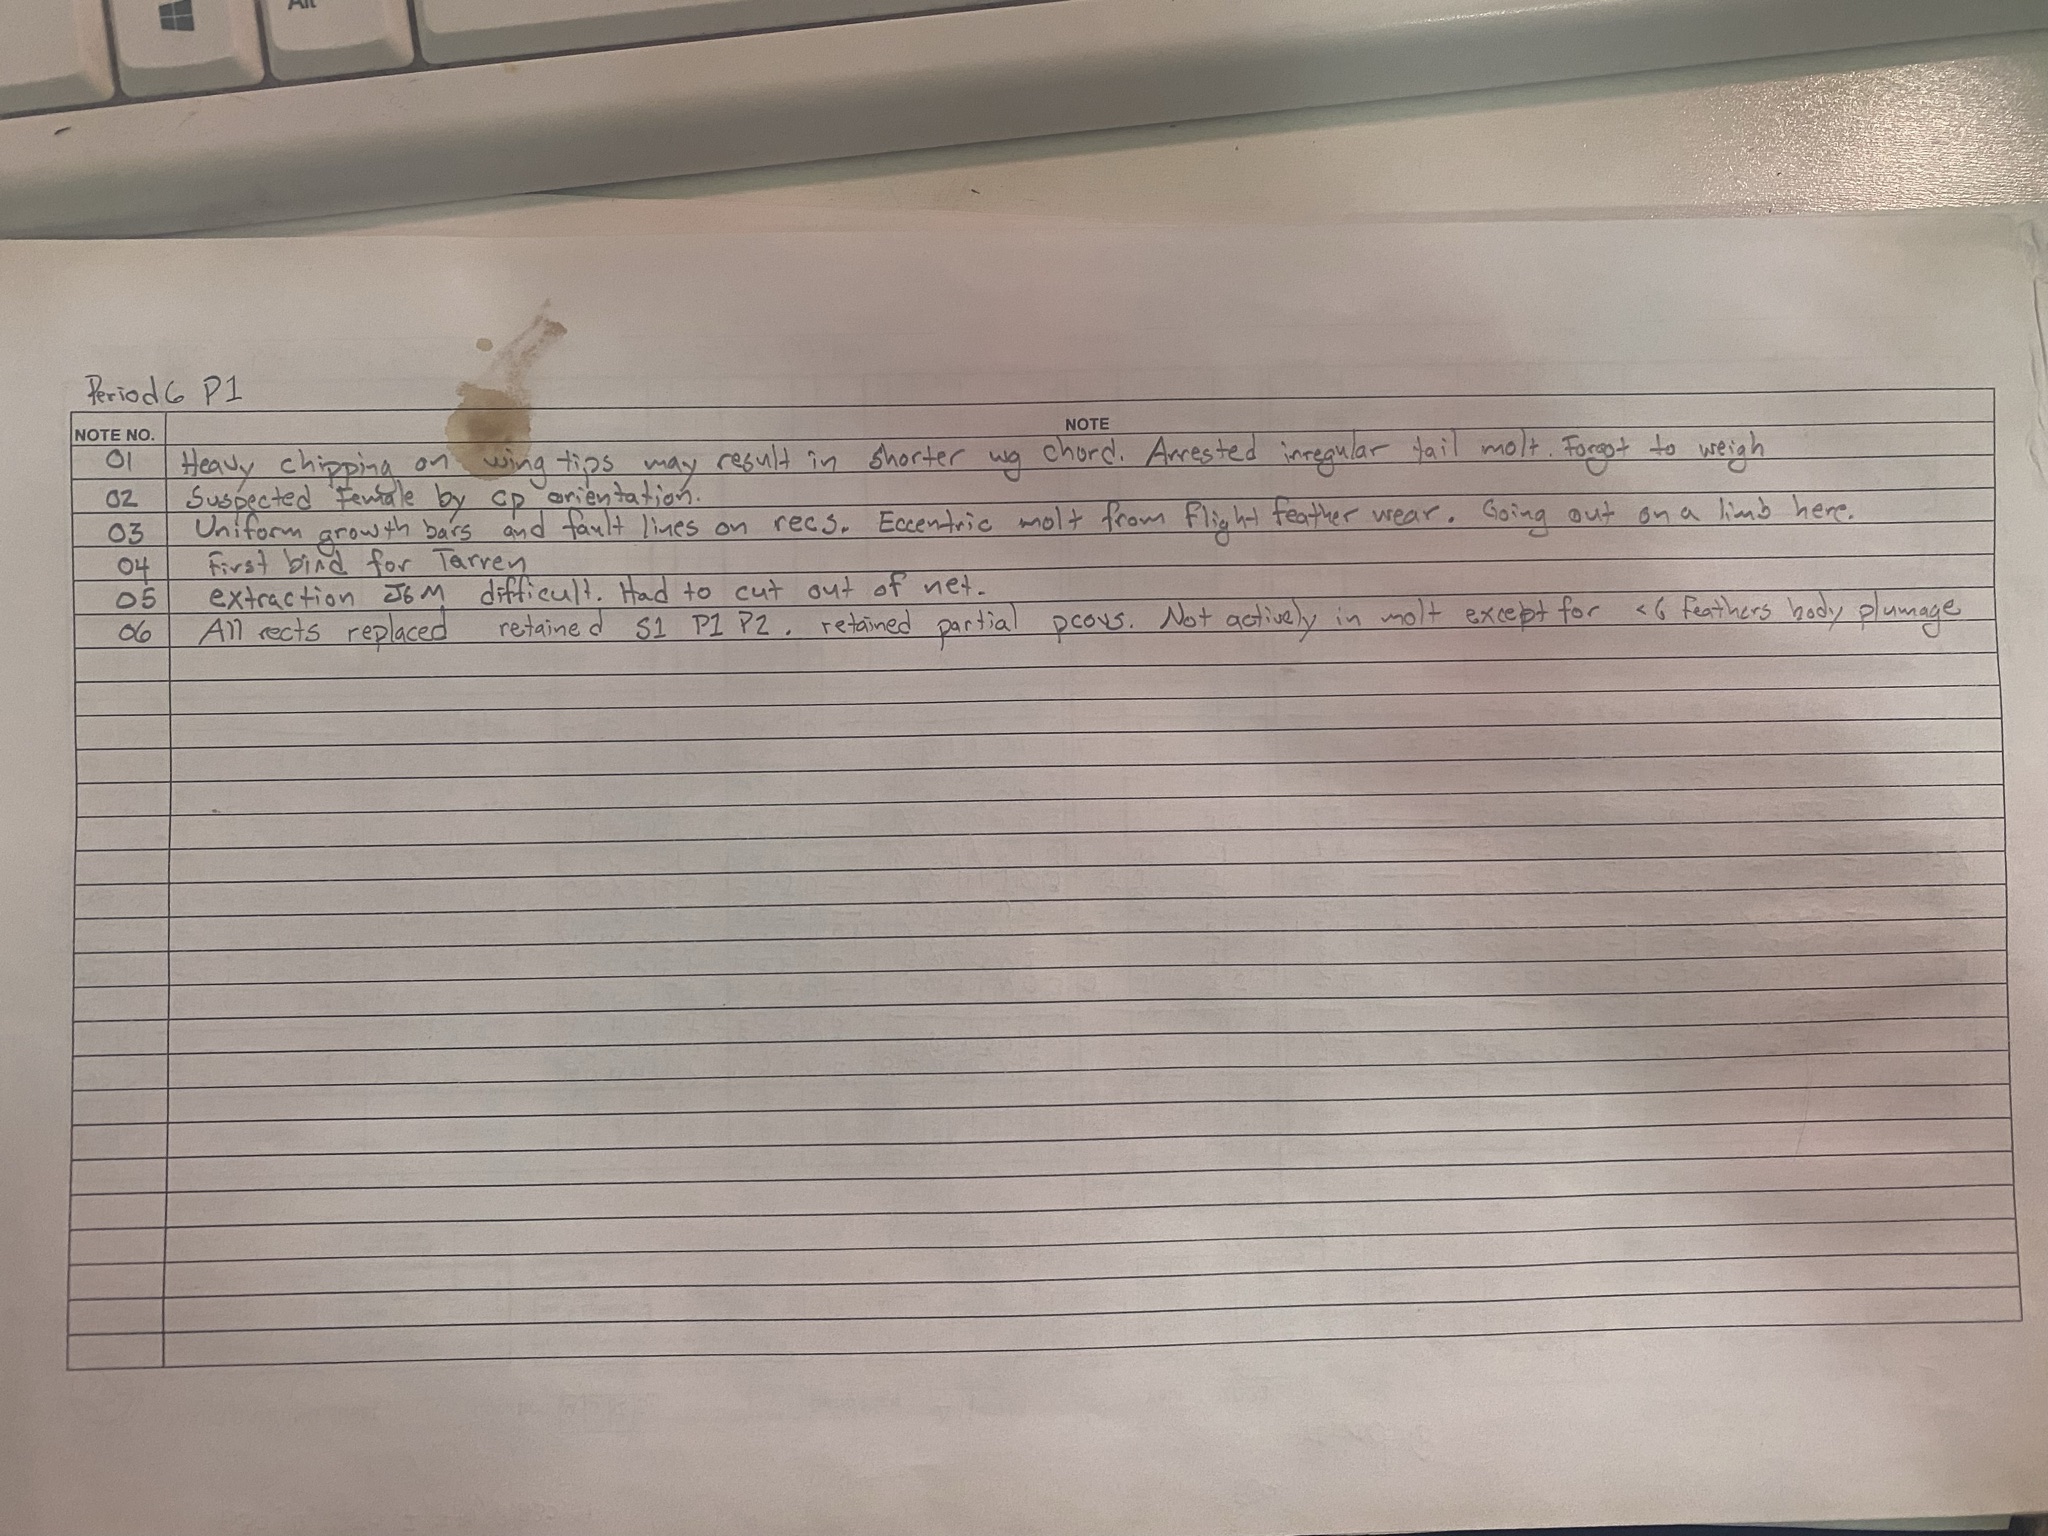 Alt
Period 6 P1
NOTE NO. NOTE
01 Heavy chipping on wing tips may result in shorter wg chord. Arrested irregular tail molt. Forgot to weigh
02 Suspected Female by cp orientation.
03 Uniform growth bars and fault lines on recs. Eccentric molt from flight feather wear. Going out on a limb here.
04 First bird for Tarren
05 extraction difficult. Had to cut out of net.
06 All rects replaced retained S1 P1 P2. retained partial pcovs. Not actively in molt except for <6 feathers body plumage